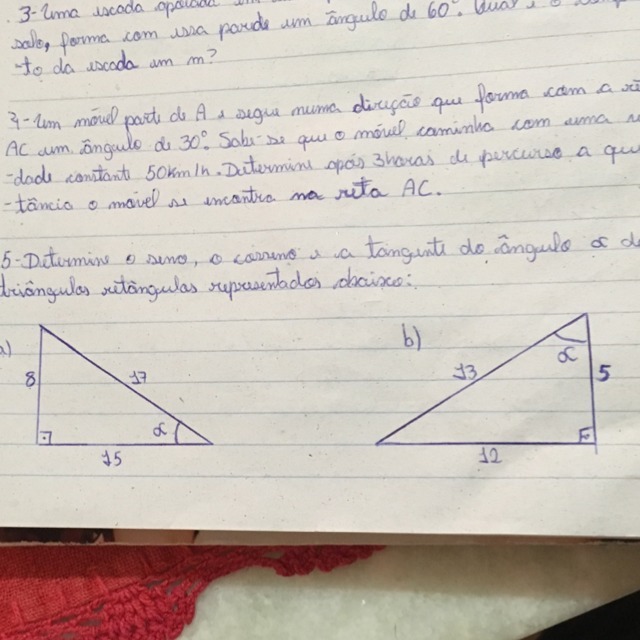 3-Uma escada apoiada
solo, forma com essa parede um ângulo de 60°. Qual é o
-to da escada em m?
3-Um móvel parte de A e segue numa direção que forma com a
AC um ângulo de 30°. Sabe-se que o móvel caminha com uma
-dade constante 50km/h. Determine após 3horas de percurso a que
-tância o móvel se encontra na reta AC.
5-Determine o seno, o cosseno e a tangente do ângulo α do
triângulos retângulos representados abaixo:
a)
b)
8
17
α
15
13
α
5
12